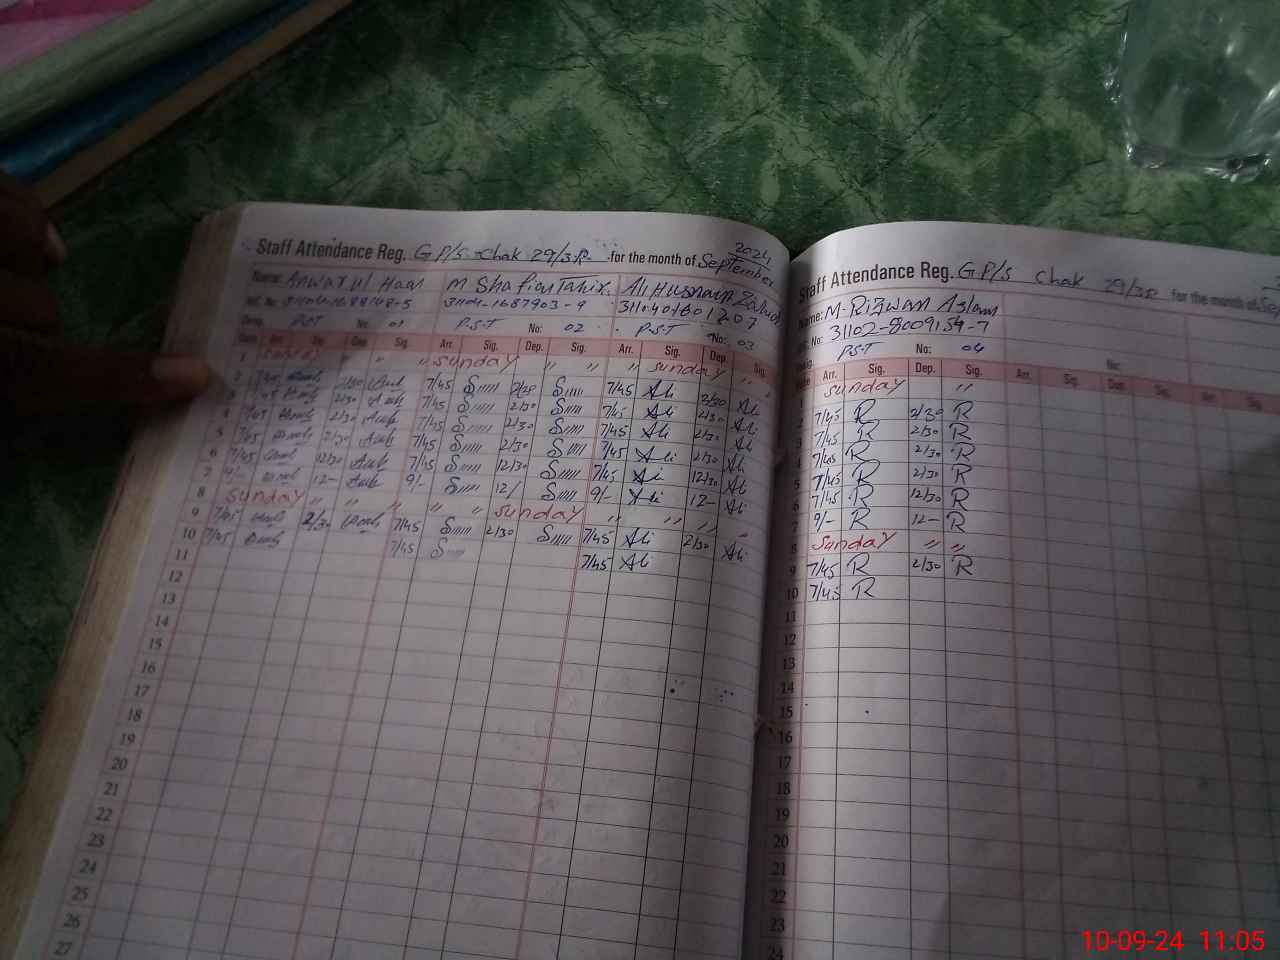 Staff Attendance Reg. G.P/s Chak 29/3R for the month of September 2024
Name: Anwar ul Haq M Shafique Tahir Ali Husnain
31104-1687903-9
P.S.T No: 01 P.S.T No: 02 P.S.T No: 03
Arr. Sig. Dep. Sig. Arr. Sig. Dep. Sig.
1 Sunday " " Sunday " " Sunday "
2 7/45 2/30 7/45 Ali 2/30 Ali
3 2/30 7/45 2/30 7/45 Ali 2/30 Ali
4 7/45 2/30 7/45 2/30 7/45 Ali 2/30 Ali
5 7/45 2/30 7/45 2/30 7/45 Ali 2/30 Ali
6 7/45 12/30 7/45 12/30 7/45 Ali 12/30 Ali
7 12- 9/- 12/ 9/- Ali 12- Ali
8 Sunday " " " " Sunday " " "
9 7/45 2/30 7/45 2/30 7/45 Ali 2/30 Ali
10 7/45 7/45 7/45 Ali
11
12
13
14
15
16
17
18
19
20
21
22
23
24
25
26
27
Staff Attendance Reg. G.P/s Chak 29/3R for the month of
Name: M. Rizwan Aslam
No: 31102-8009154-7
P.S.T No: 04 No:
Arr. Sig. Dep. Sig. Arr. Sig. Dep. Sig. Arr. Sig.
Sunday "
2 7/45 R 2/30 R
3 7/45 R 2/30 R
4 7/45 R 2/30 R
5 7/45 R 2/30 R
6 7/45 R 12/30 R
7 9/- R 12- R
8 Sunday " "
9 7/45 R 2/30 R
10 7/45 R
11
12
13
14
15
16
17
18
19
20
21
22
23
24
10-09-24 11:05